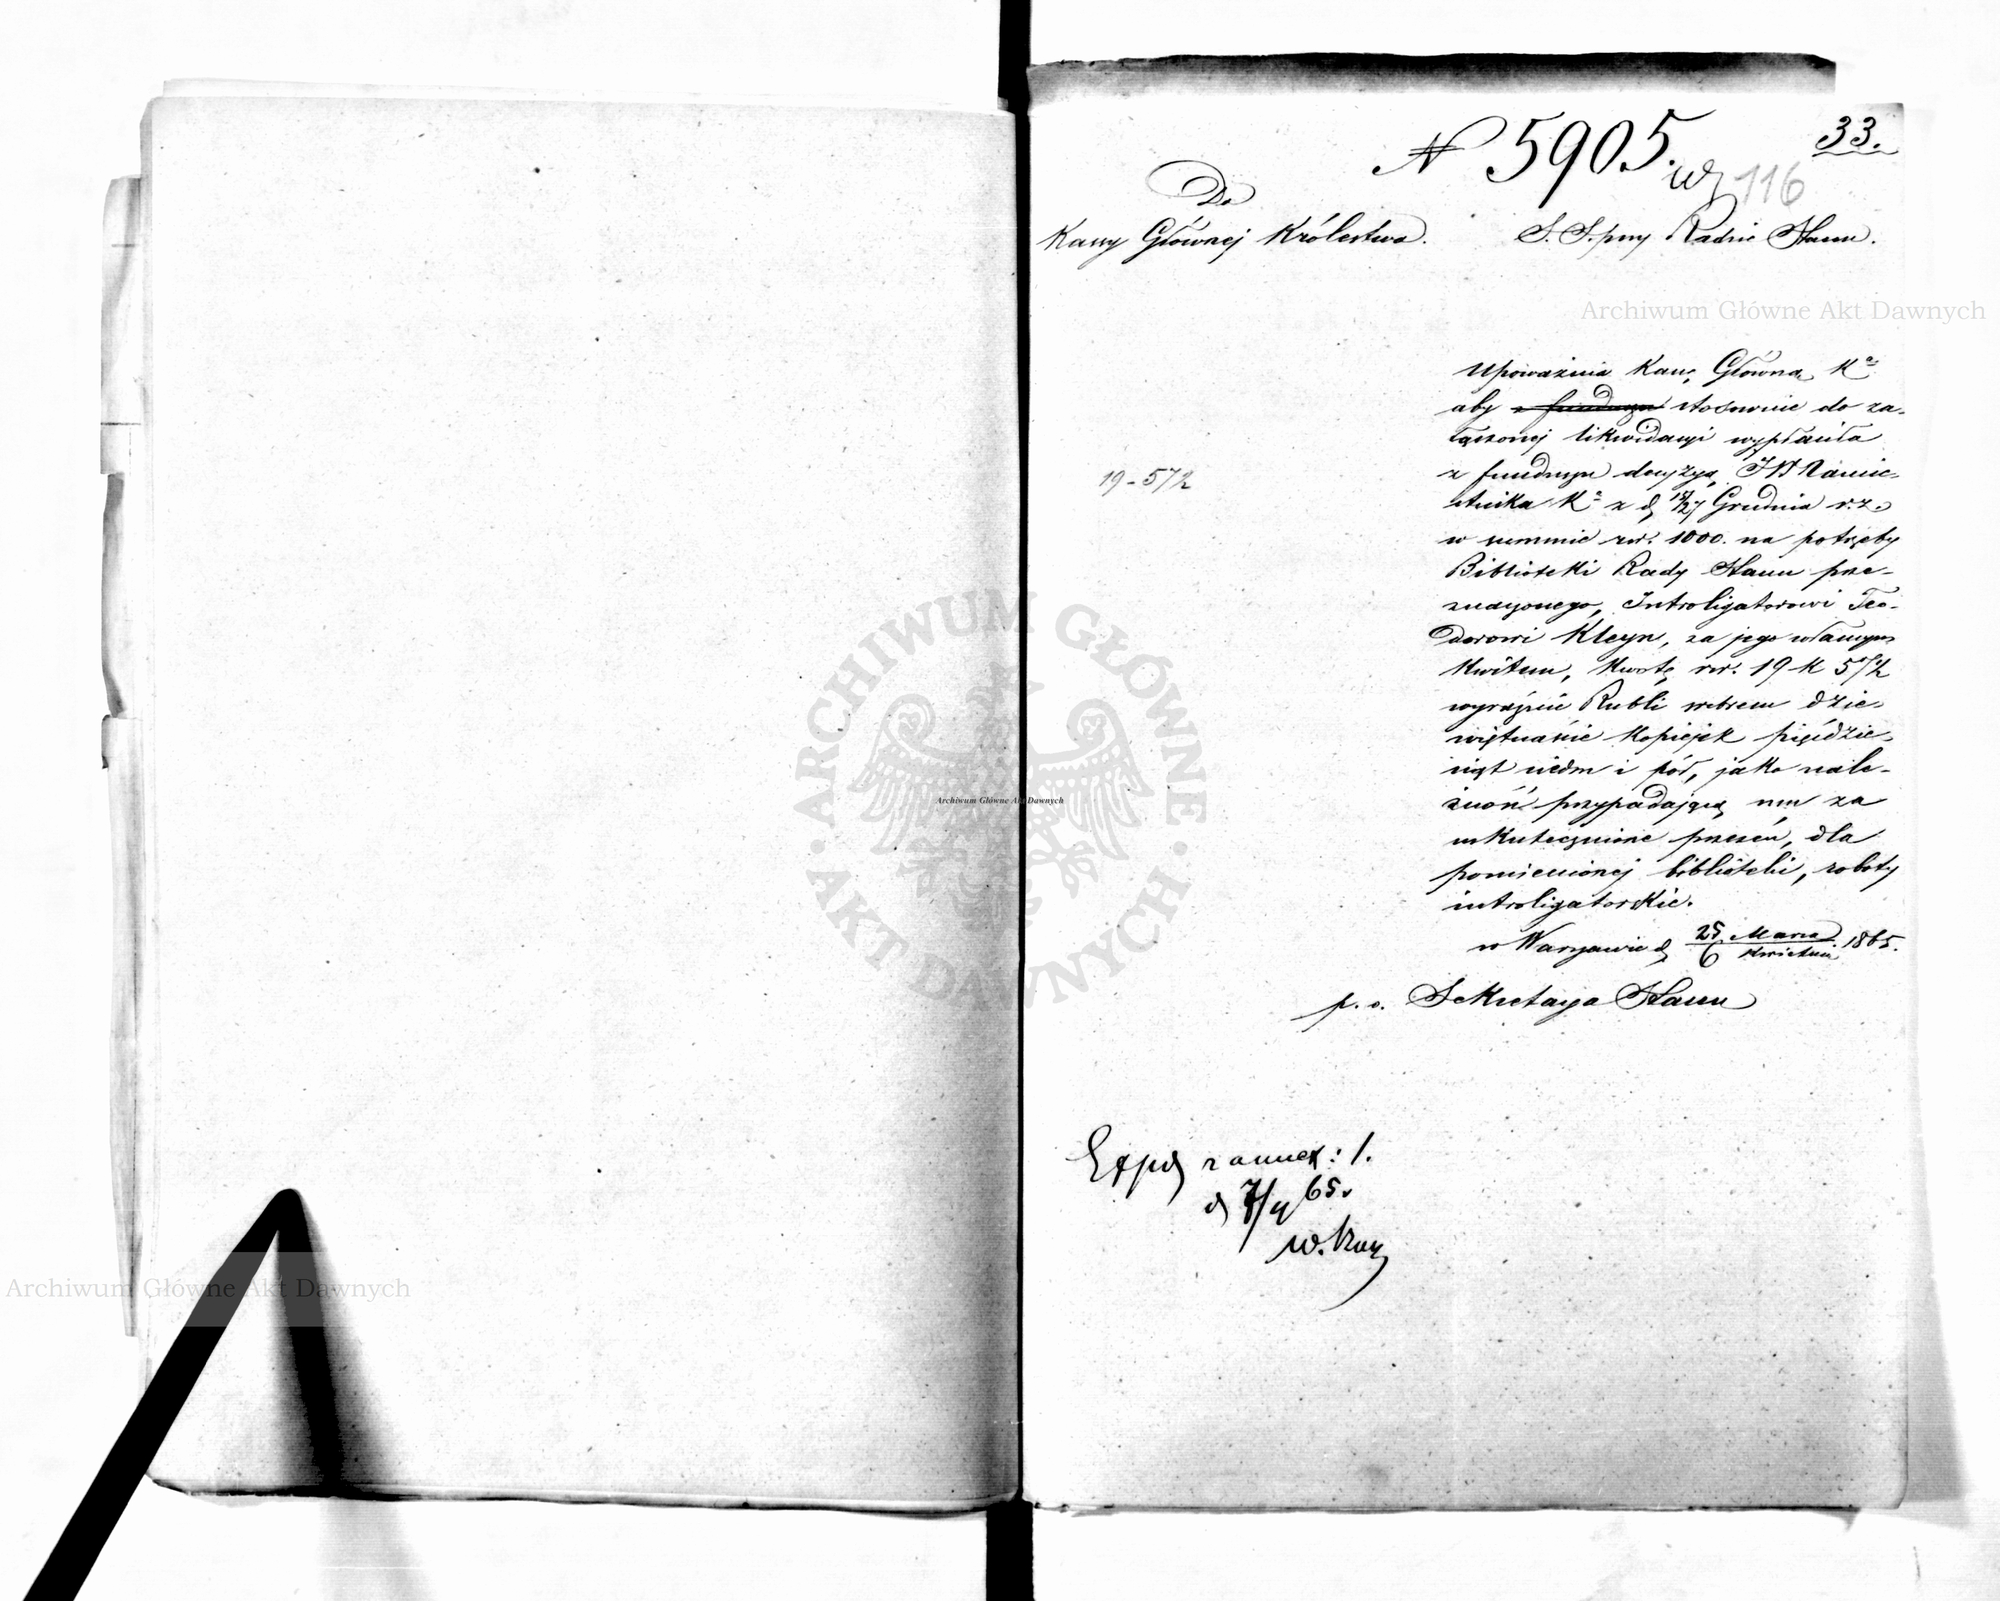 33.
N 5905.
116
Do
Kassy Głównej Królestwa.
S. S. przy Radzie Stanu.
Archiwum Główne Akt Dawnych
Upoważnia Kassę Główną Kª
aby z funduszu stosownie do za-
łączonej likwidacyi wypłaciła
z funduszu decyzyą JW Namie-
19 - 57½
stnika Kª z d 15/27 Grudnia r. z.
w summie rsr. 1000. na potrzeby
Biblioteki Rady Stanu prze-
znaczonego, Introligatorowi Teo-
dorowi Kleyn, za jego własnym
kwitem, kwotę rsr. 19 k 57½
wyraźnie Rubli srebrem dzie-
więtnaście kopiejek pięćdzie-
siąt siedm i pół, jako nale-
żność przypadającą mu za
uskutecznione przezeń, dla
pomienionej biblioteki, roboty
introligatorskie.
w Warszawie d 25 Marca / 6 Kwietnia 1865.
p. o. Sekretarza Stanu
Exped z annex: 1.
d 7/4 65.
ARCHIWUM GŁÓWNE
AKT DAWNYCH
Archiwum Główne Akt Dawnych
Archiwum Główne Akt Dawnych